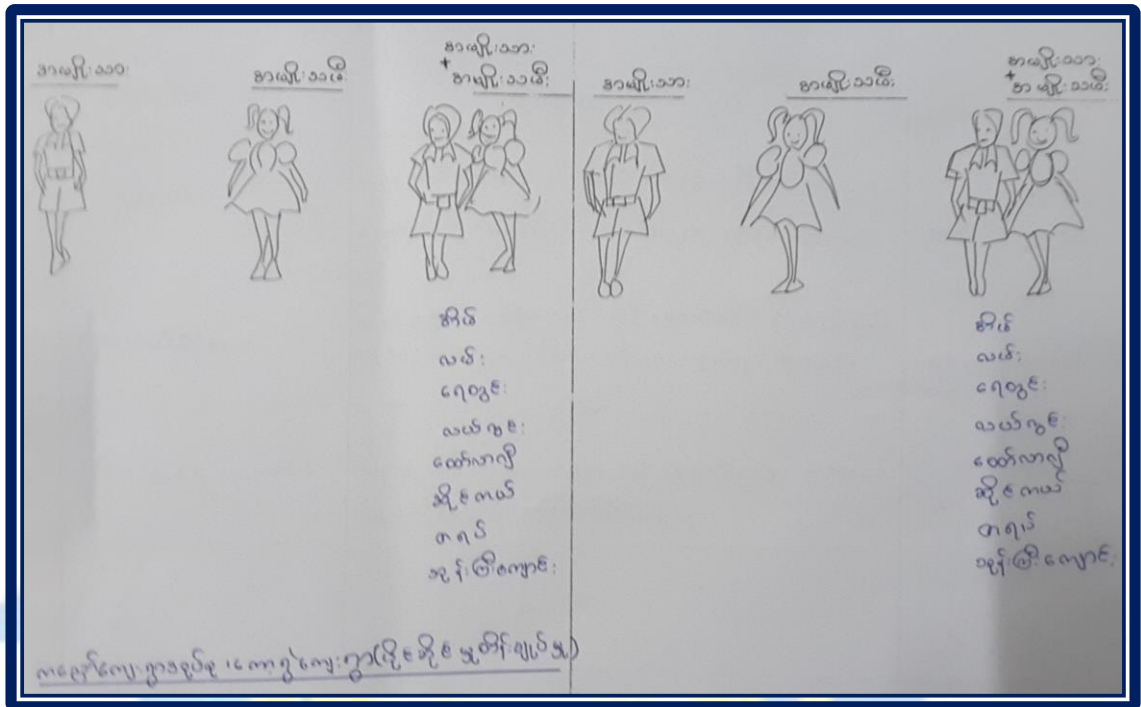 အမျိုးသား
အမျိုးသမီး
အမျိုးသား
+
အမျိုးသမီး
အိမ်
လမ်း
ရေတွင်း
လယ်ကွင်း
ထော်လာဂျီ
ဆိုင်ကယ်
တရပ်
ဘုန်းကြီးကျောင်း
အမျိုးသား
အမျိုးသမီး
အမျိုးသား
+
အမျိုးသမီး
အိမ်
လမ်း
ရေတွင်း
လယ်ကွင်း
ထော်လာဂျီ
ဆိုင်ကယ်
တရပ်
ဘုန်းကြီးကျောင်း
ကျေးရွာအုပ်စု ကျေးရွာ(ပိုင်ဆိုင်မှုထိန်းချုပ်မှု)